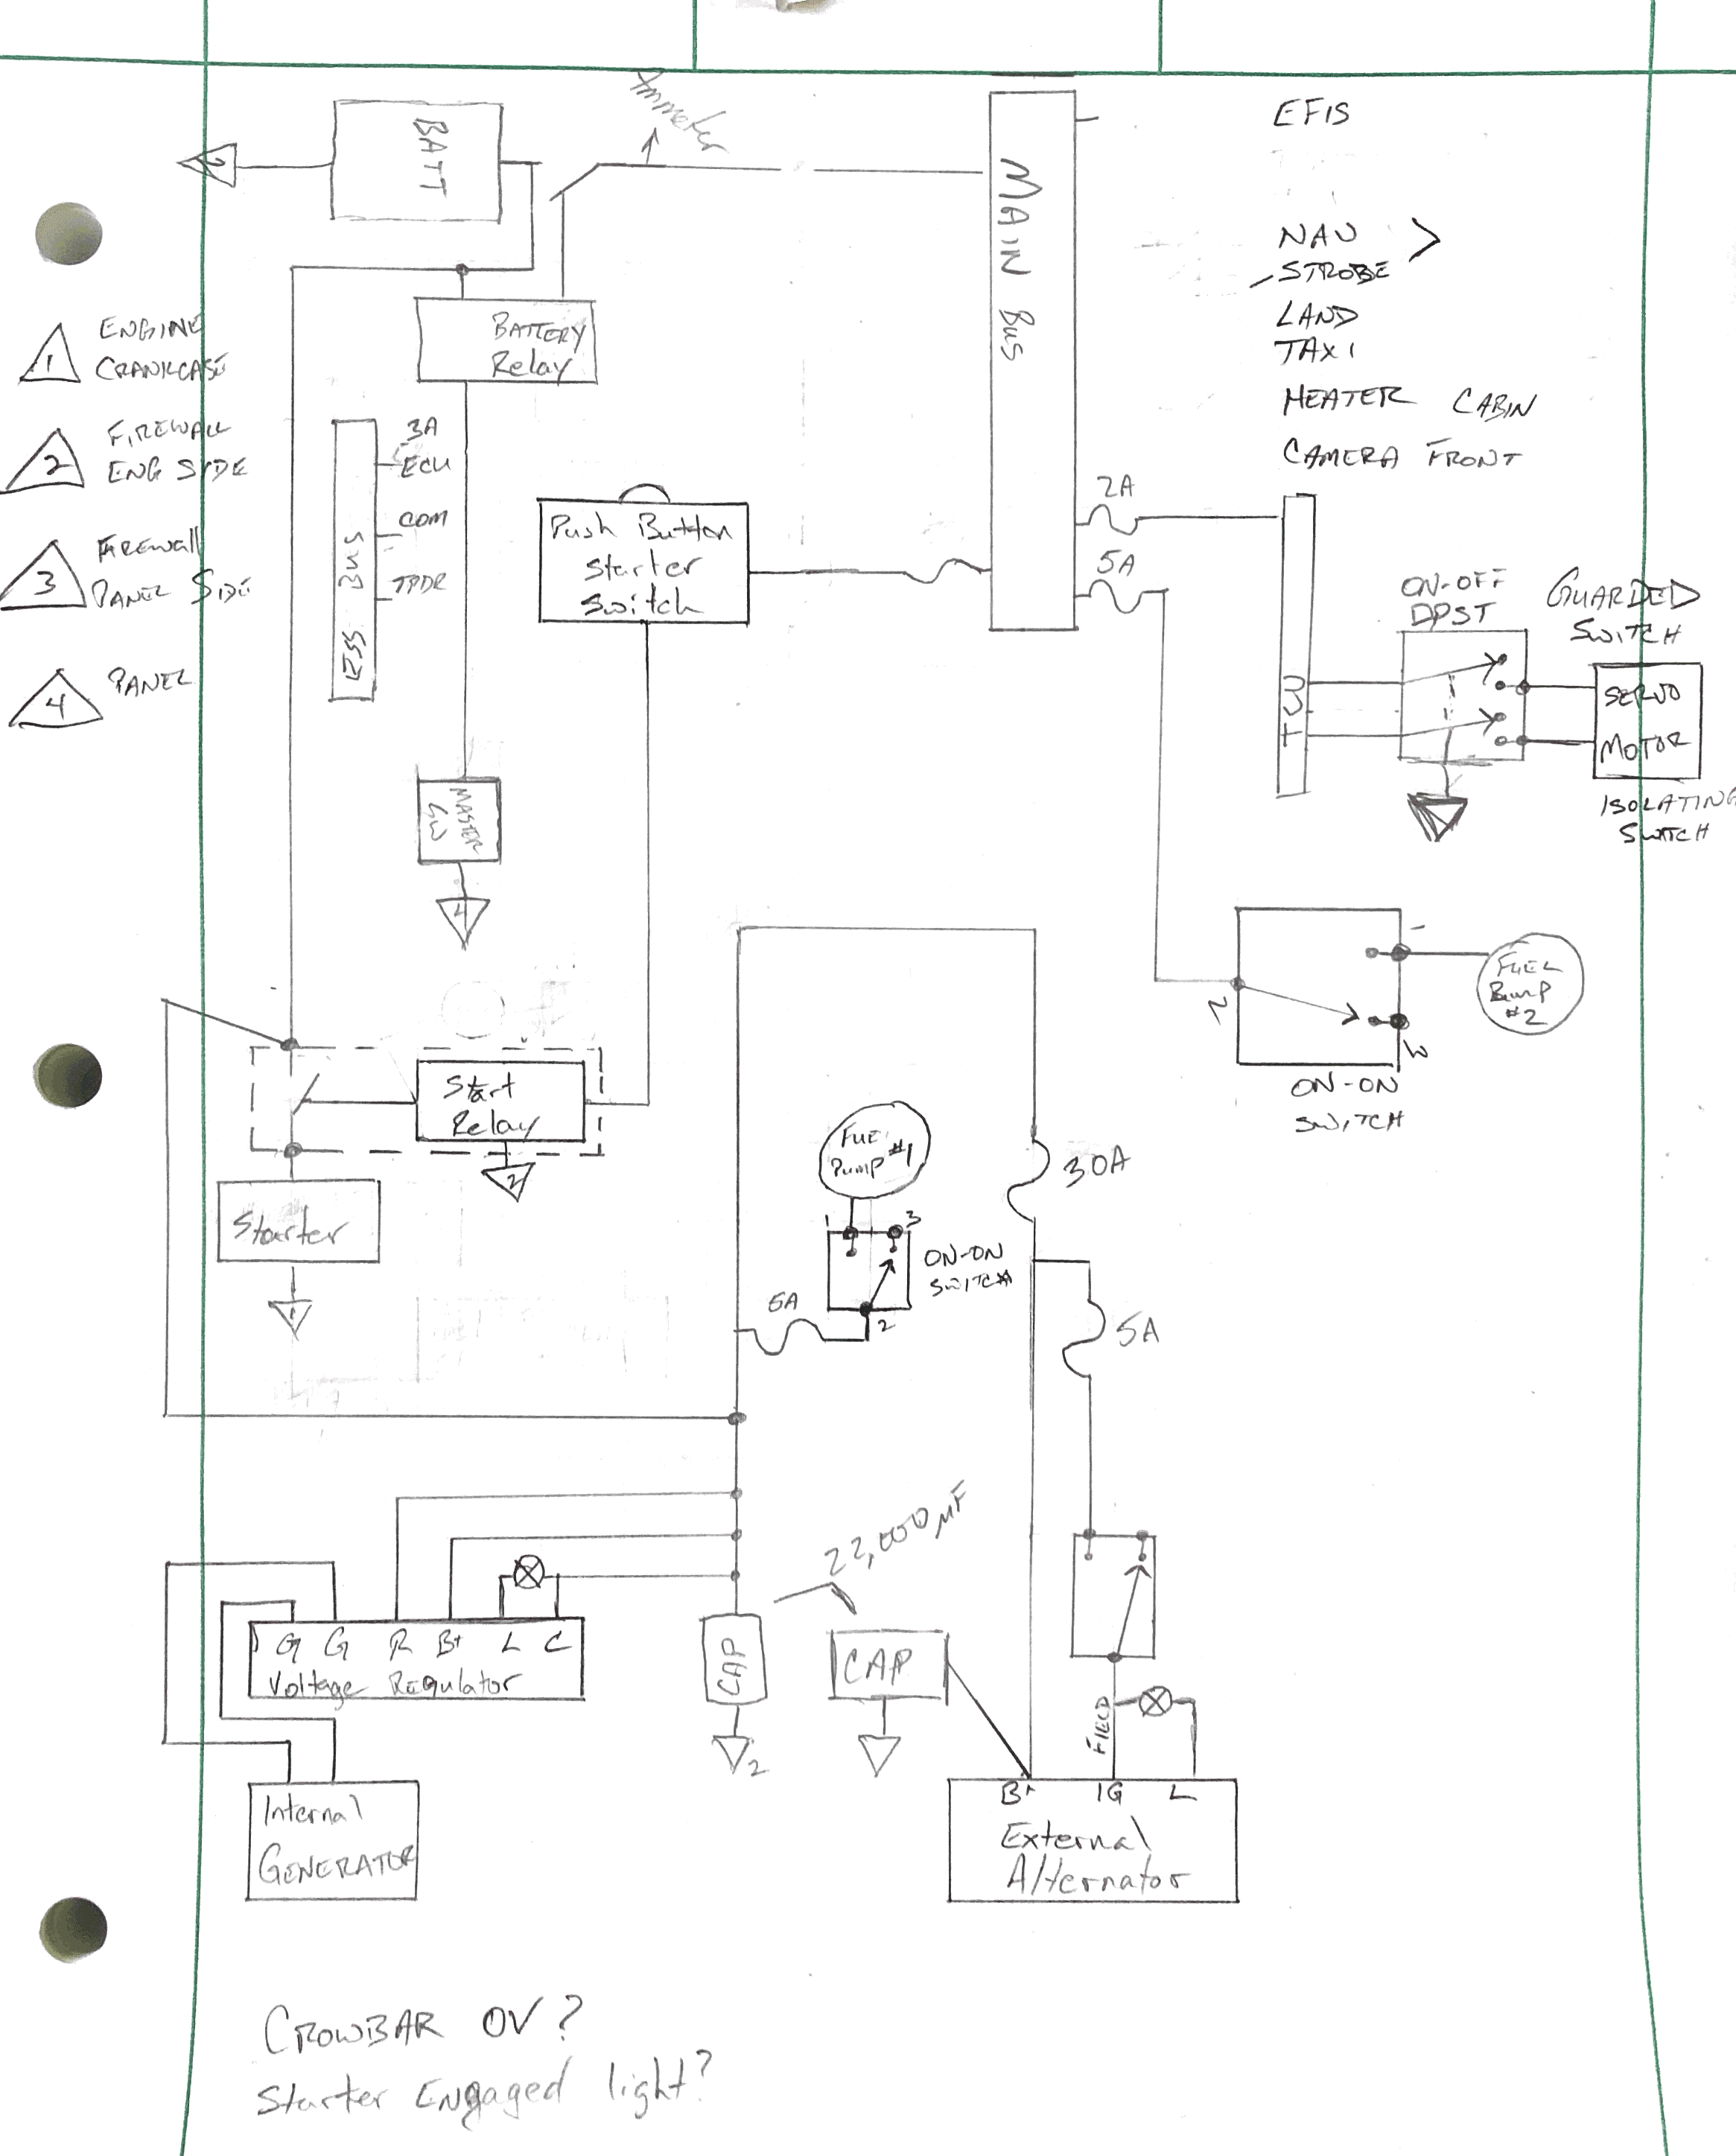 Ammeter
BATT
2
EFIS
MAIN BUS
NAV >
STROBE
LAND
TAXI
HEATER CABIN
CAMERA FRONT
1 ENGINE
CRANKCASE
2 FIREWALL
ENG SIDE
3 FIREWALL
PANEL SIDE
4 PANEL
BATTERY
Relay
3A
ECU
COM
TPDR
ESS BUS
Push Button
Starter
Switch
2A
5A
ON-OFF
DPST
GUARDED
SWITCH
SERVO
MOTOR
ISOLATING
SWITCH
MASTER
SW
4
1
2
3
FUEL
#2
ON-ON
SWITCH
Start
Relay
2
Starter
1
FUEL
PUMP #1
1
3
2
ON-ON
SWITCH
5A
30A
5A
22,000 µF
G G R B+ L C
Voltage Regulator
CAP
2
CAP
FIELD
Internal
GENERATOR
B+ IG L
External
Alternator
CROWBAR OV?
Starter Engaged light?